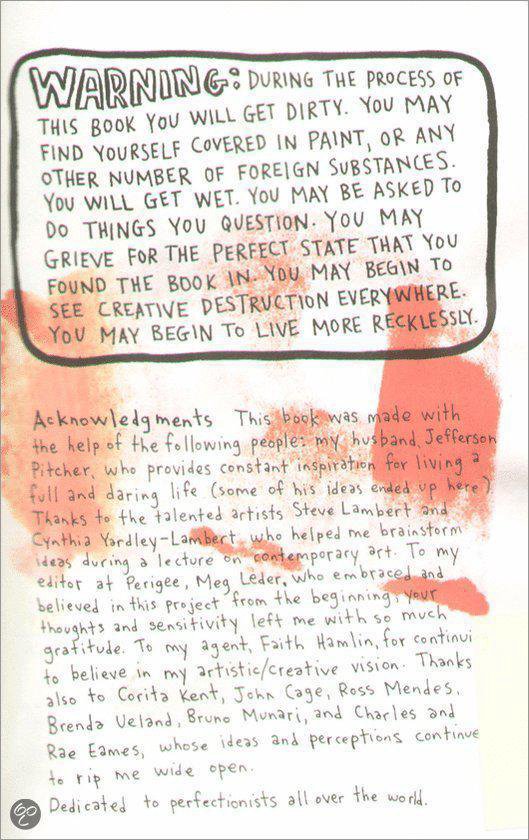 WARNING: DURING THE PROCESS OF
THIS BOOK YOU WILL GET DIRTY. YOU MAY
FIND YOURSELF COVERED IN PAINT, OR ANY
OTHER NUMBER OF FOREIGN SUBSTANCES.
YOU WILL GET WET. YOU MAY BE ASKED TO
DO THINGS YOU QUESTION. YOU MAY
GRIEVE FOR THE PERFECT STATE THAT YOU
FOUND THE BOOK IN. YOU MAY BEGIN TO
SEE CREATIVE DESTRUCTION EVERYWHERE.
YOU MAY BEGIN TO LIVE MORE RECKLESSLY.
Acknowledgments This book was made with
the help of the following people: my husband, Jefferson
Pitcher, who provides constant inspiration for living a
full and daring life (some of his ideas ended up here)
Thanks to the talented artists Steve Lambert and
Cynthia Yardley-Lambert, who helped me brainstorm
ideas during a lecture on contemporary art. To my
editor at Perigee, Meg Leder, who embraced and
believed in this project from the beginning, your
thoughts and sensitivity left me with so much
gratitude. To my agent, Faith Hamlin, for continui
to believe in my artistic/creative vision. Thanks
also to Corita Kent, John Cage, Ross Mendes,
Brenda Ueland, Bruno Munari, and Charles and
Rae Eames, whose ideas and perceptions continue
to rip me wide open.
Dedicated to perfectionists all over the world.